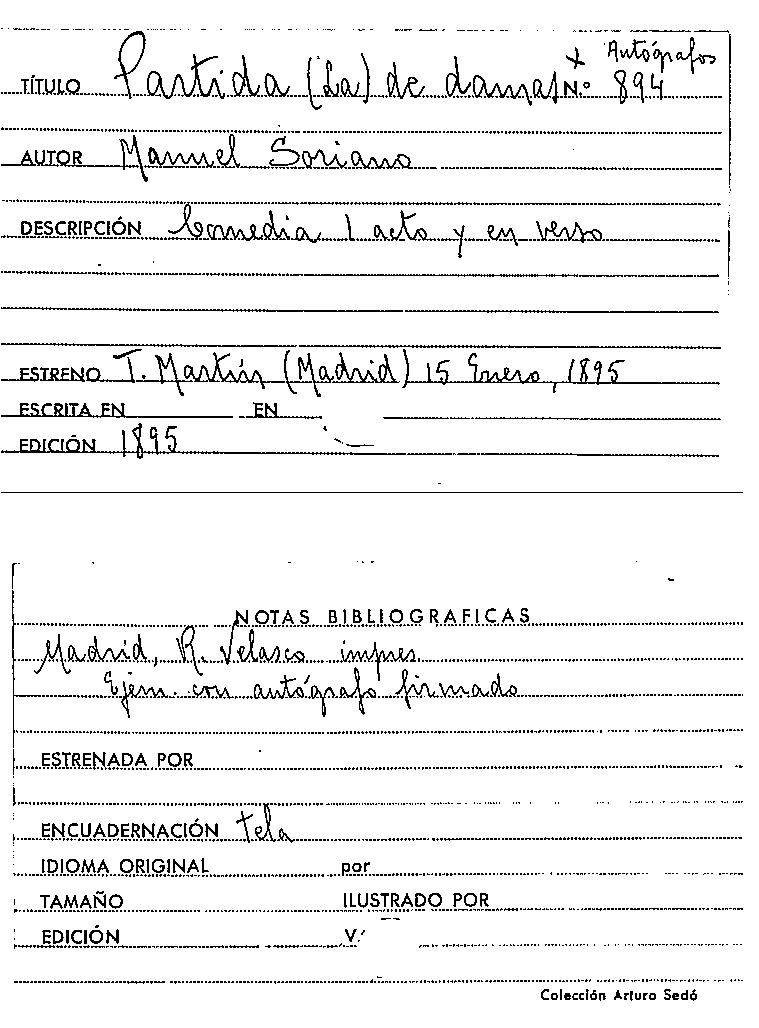 Autógrafos
TÍTULO Partida (La) de damas N.º 894
AUTOR Manuel Soriano
DESCRIPCIÓN Comedia 1 acto y en verso
ESTRENO T. Martín (Madrid) 15 Enero, 1895
ESCRITA EN EN
EDICIÓN 1895
NOTAS BIBLIOGRAFICAS
Madrid, R. Velasco impres
Ejem. con autógrafo firmado
ESTRENADA POR
ENCUADERNACIÓN tela
IDIOMA ORIGINAL por
TAMAÑO ILUSTRADO POR
EDICIÓN V.
Colección Arturo Sedó